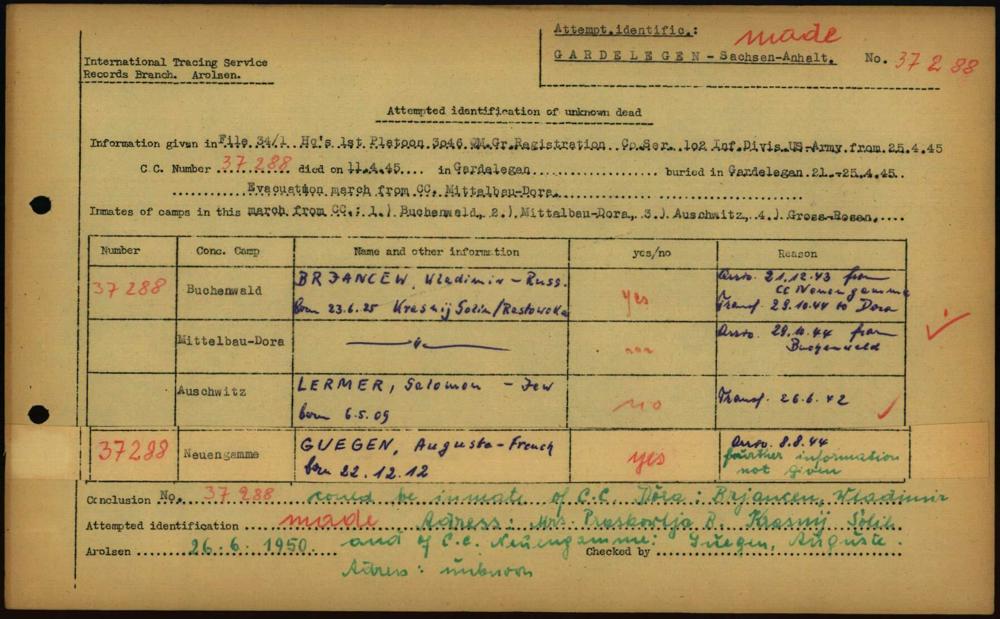 Attempt.identific.: made
GARDELEGEN - Sachsen-Anhalt. No. 37 288
International Tracing Service
Records Branch. Arolsen.
Attempted identification of unknown dead
Information given in File 34/1 Hq's 1st Platoon 3046 QM.Gr.Registration Co.Ser. 102 Inf.Divis.US-Army.from 25.4.45
C.C. Number 37 288 died on 11.4.45. in Gardelegen buried in Gardelegan 21.-25.4.45.
Evacuation march from CC. Mittelbau-Dora.
Inmates of camps in this march from CC.: 1.) Buchenwald, 2.) Mittelbau-Dora, 3.) Auschwitz, 4.) Gross-Rosen.
Number Conc. Camp Name and other information yes/no Reason
37 288 Buchenwald BRJANCEW, Wladimir - Russ. born 23.6.25 Krasnij Solin/Rostowska yes Arriv. 21.12.43 from CC Neuengamme Transf. 29.10.44 to Dora
Mittelbau-Dora — " — Arriv. 29.10.44 from Buchenwald
Auschwitz LERMER, Salomon - Jew born 6.5.09 no Transf. 26.6.42
37288 Neuengamme GUEGEN, Auguste - French born 22.12.12 yes Arriv. 8.8.44 further information not given
Conclusion No. 37.288 could be inmate of C.C. Dora: Brjancew, Wladimir
Attempted identification made Adress: Mrs. Praskowtja B. Krasnij Solin
Arolsen 26.6.1950. and of C.C. Neuengamme: Guegen, Auguste. Checked by:
Adress: unknoon